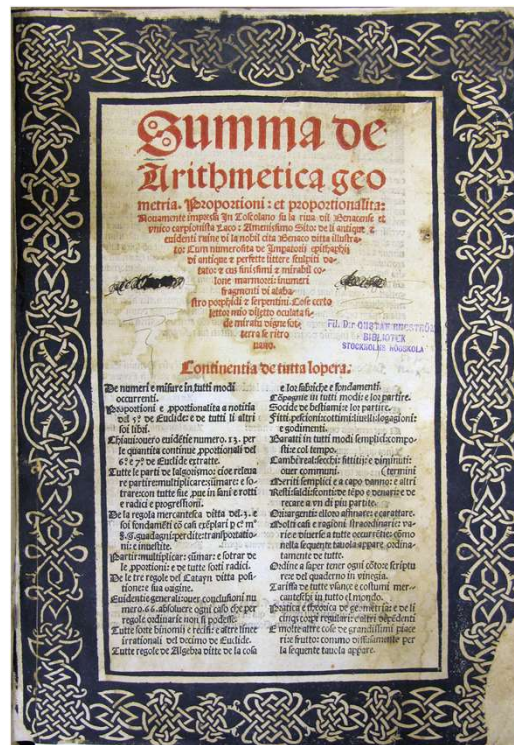 Summa de
Arithmetica geo
metria. Proportioni: et proportionalita:
Nouamente impressa In Toscolano su la riua dil Benacense et
vnico carpionista Laco: Amenissimo Sito: de li antique &
euidenti ruine di la nobil cita Benaco ditta illustra-
to: Cum numerosita de Impatorii epithaphii
di antique & perfette littere sculpiti do-
tato: & cus finissimi & mirabil co-
lone marmorei: inumeri
fragmenti di alaba-
stro porphidi & serpentini. Cose certo
lettor mio diletto oculata fi-
de miratu digne sot-
terra se ritro
uano.
FIL. D:r GUSTAF ENESTRÖM
BIBLIOTEK
STOCKHOLMS HÖGSKOLA
Continentia de tutta lopera:
De numeri e misure in tutti modi
occurrenti.
Proportioni e ꝓportionalita a notitia
del 5º de Euclide: e de tutti li altri
soi libri.
Chiaui: ouero euidētie numero. 13. per
le quantita continue ꝓportionali del
6º e 7º de Euclide extratte.
Tutte le parti de lalgorismo: cioe releua
re partire: multiplicare: sūmare: e so-
trare: con tutte sue ꝓue in sani e rotti
e radici e progressioni.
De la regola mercantesca ditta del .3. e
soi fondamēti cō casi exēplari
guadagni: perdite: transportatio-
ni: e inuestite.
Partir: multiplicar: sūmar: e sotrar de
le ꝓportioni: e de tutte sorti radici.
De le tre regole del Catayn ditta posi-
tione: e sua origine.
Euidentie generali: ouer conclusioni nu
mero .66. absoluere ogni caso che per
regole ordinarie non si podesse.
Tutte sorte binomii e recisi: e altre linee
irrationali del decimo de Euclide.
Tutte regole de Algebra ditte de la cosa
e lor fabriche e fondamenti.
Cōpagnie in tutti modi: e lor partire.
Socide de bestiami: e lor partire.
Fitti: pescioni: cottimi: liuelli: logagioni:
e godimenti.
Baratti in tutti modi semplici: compo-
sti: e col tempo.
Cambi reali: secchi: fittitii: e diminuti:
ouer communi.
Meriti semplici e a capo danno: e altri
(termini
Resti: saldi: sconti: de tēpo e denari: e de
recare a vn di piu partite.
Ori: argenti: e lloro affinare: e carattare.
Molti casi e ragioni straordinarie: va-
rie e diuerse a tutte occurrētie: cōmo
nella sequente tauola appare ordina-
tamente de tutte.
Ordine a saper tener ogni cōto e scriptu
re e del quaderno in vinegia.
Tariffa de tutte vsāçe e costumi mer-
canteschi in tutto el mondo.
Pratica e theorica de geometria: e de li
cinq corpi regulari: e altri dependenti
E molte altre cose de grandissimi piace
ri: e frutto: commo diffusamente per
la sequente tauola appare.